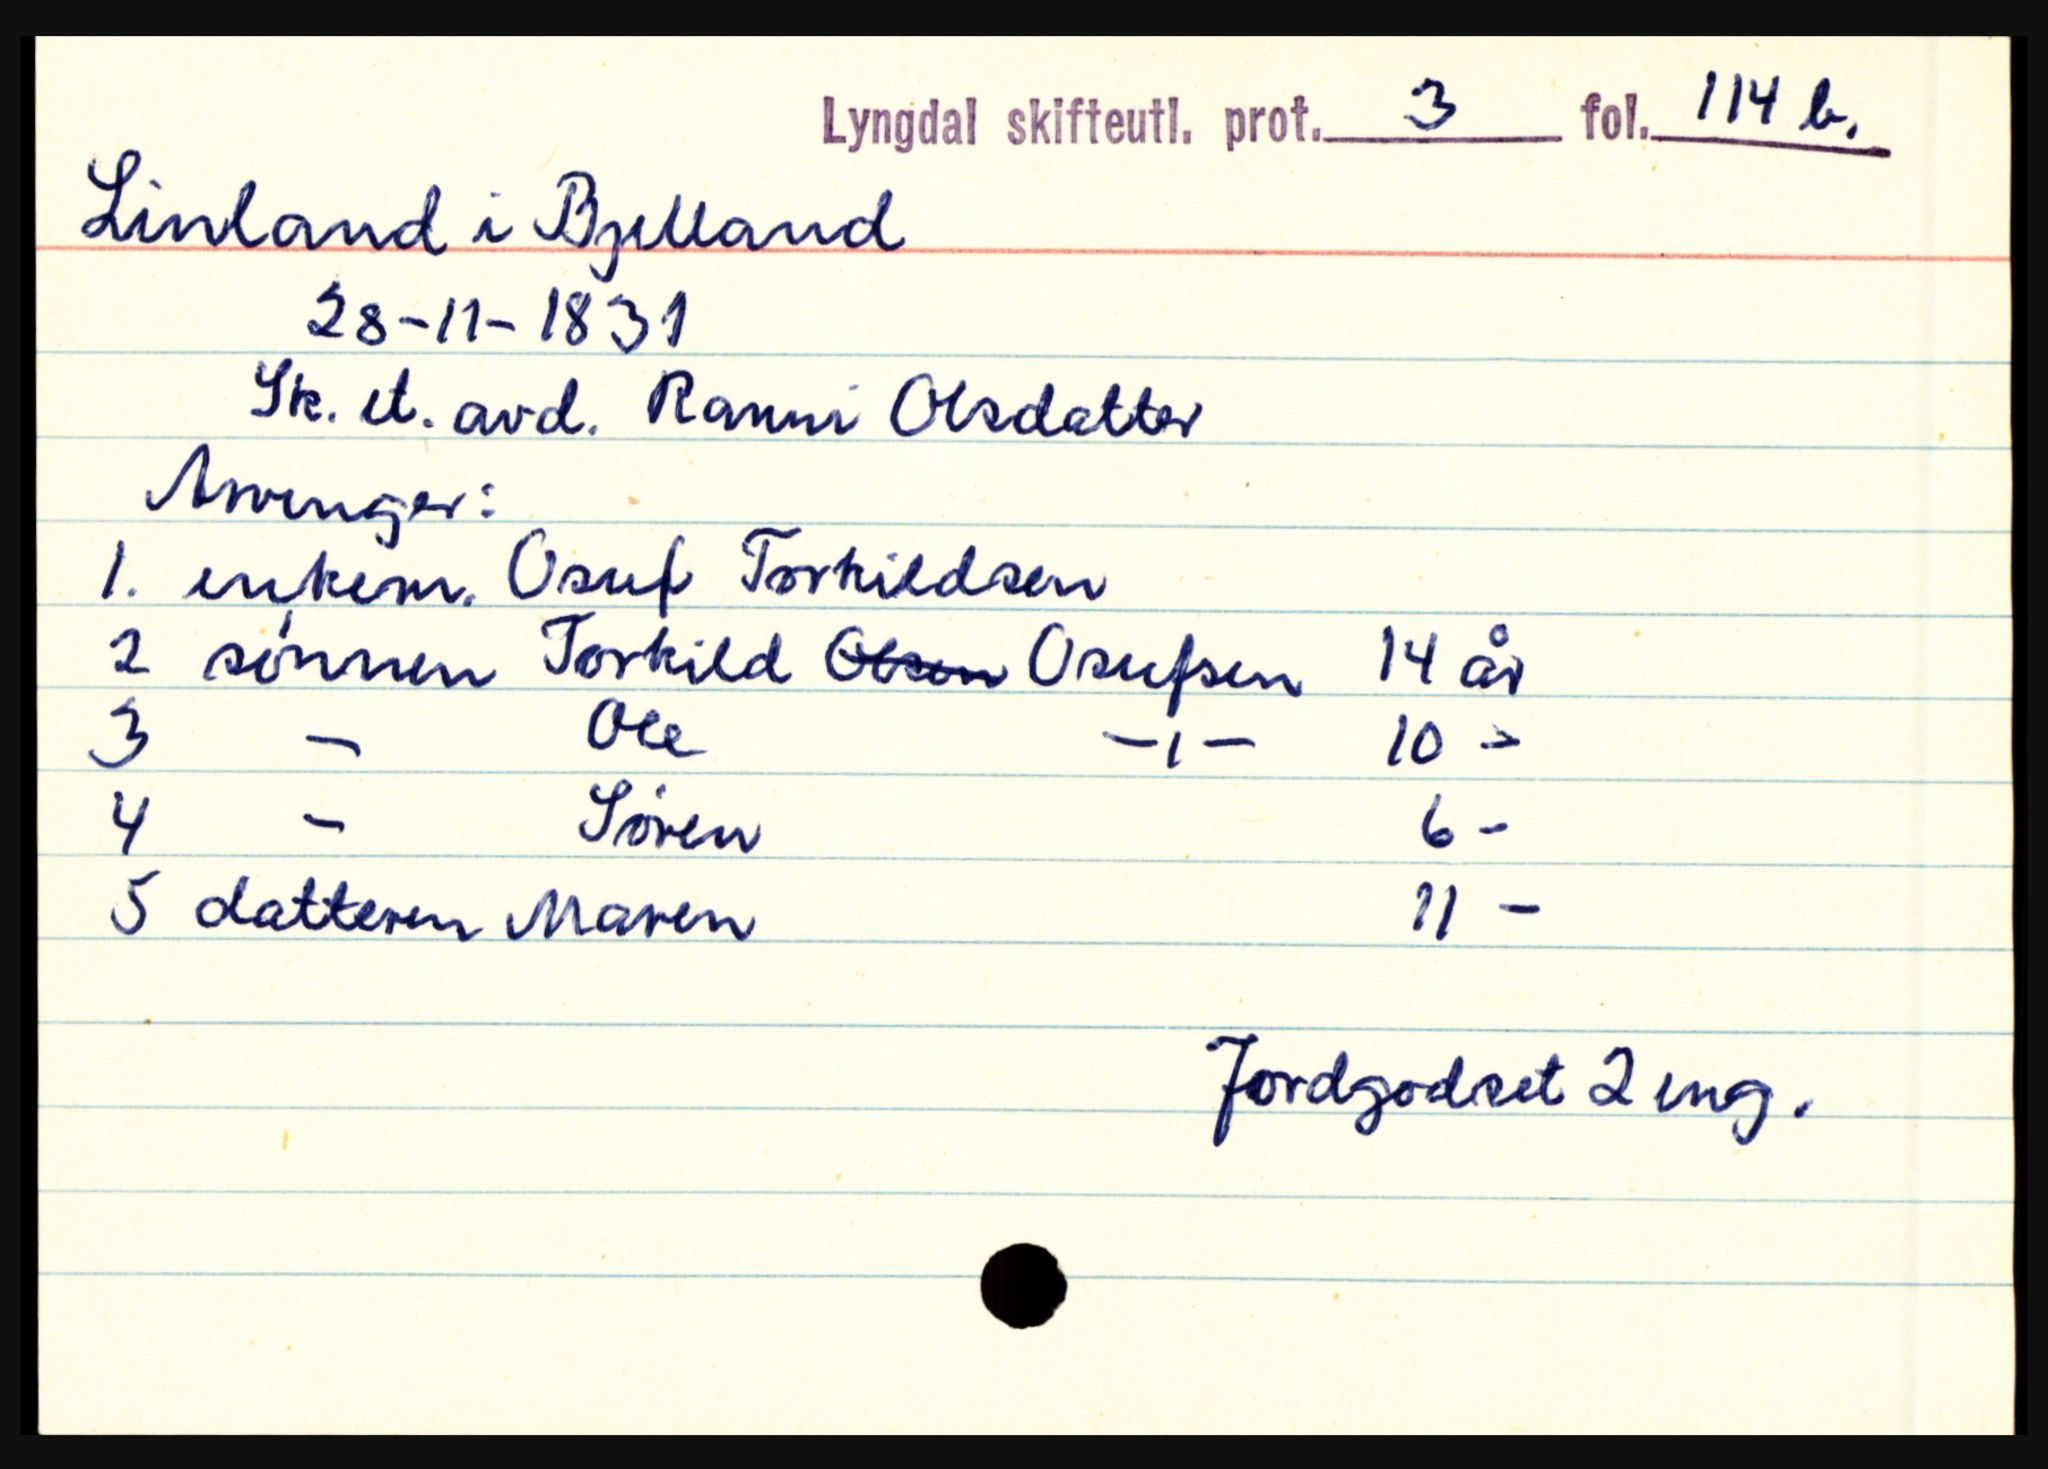 Lyngdal skifteutl. prot. 3 fol. 114 b.
Linland i Bjelland
28-11-1831
Sk. et. avd. Ranni Olsdatter
Arvinger:
1. enkem. Osuf Torkildsen
2 sønnen Torkild Olsen Osufsen 14 år
3 - Ole -"- 10 -
4 - Søren 6 -
5 datteren Maren 11 -
Jordgodset 2 eng.